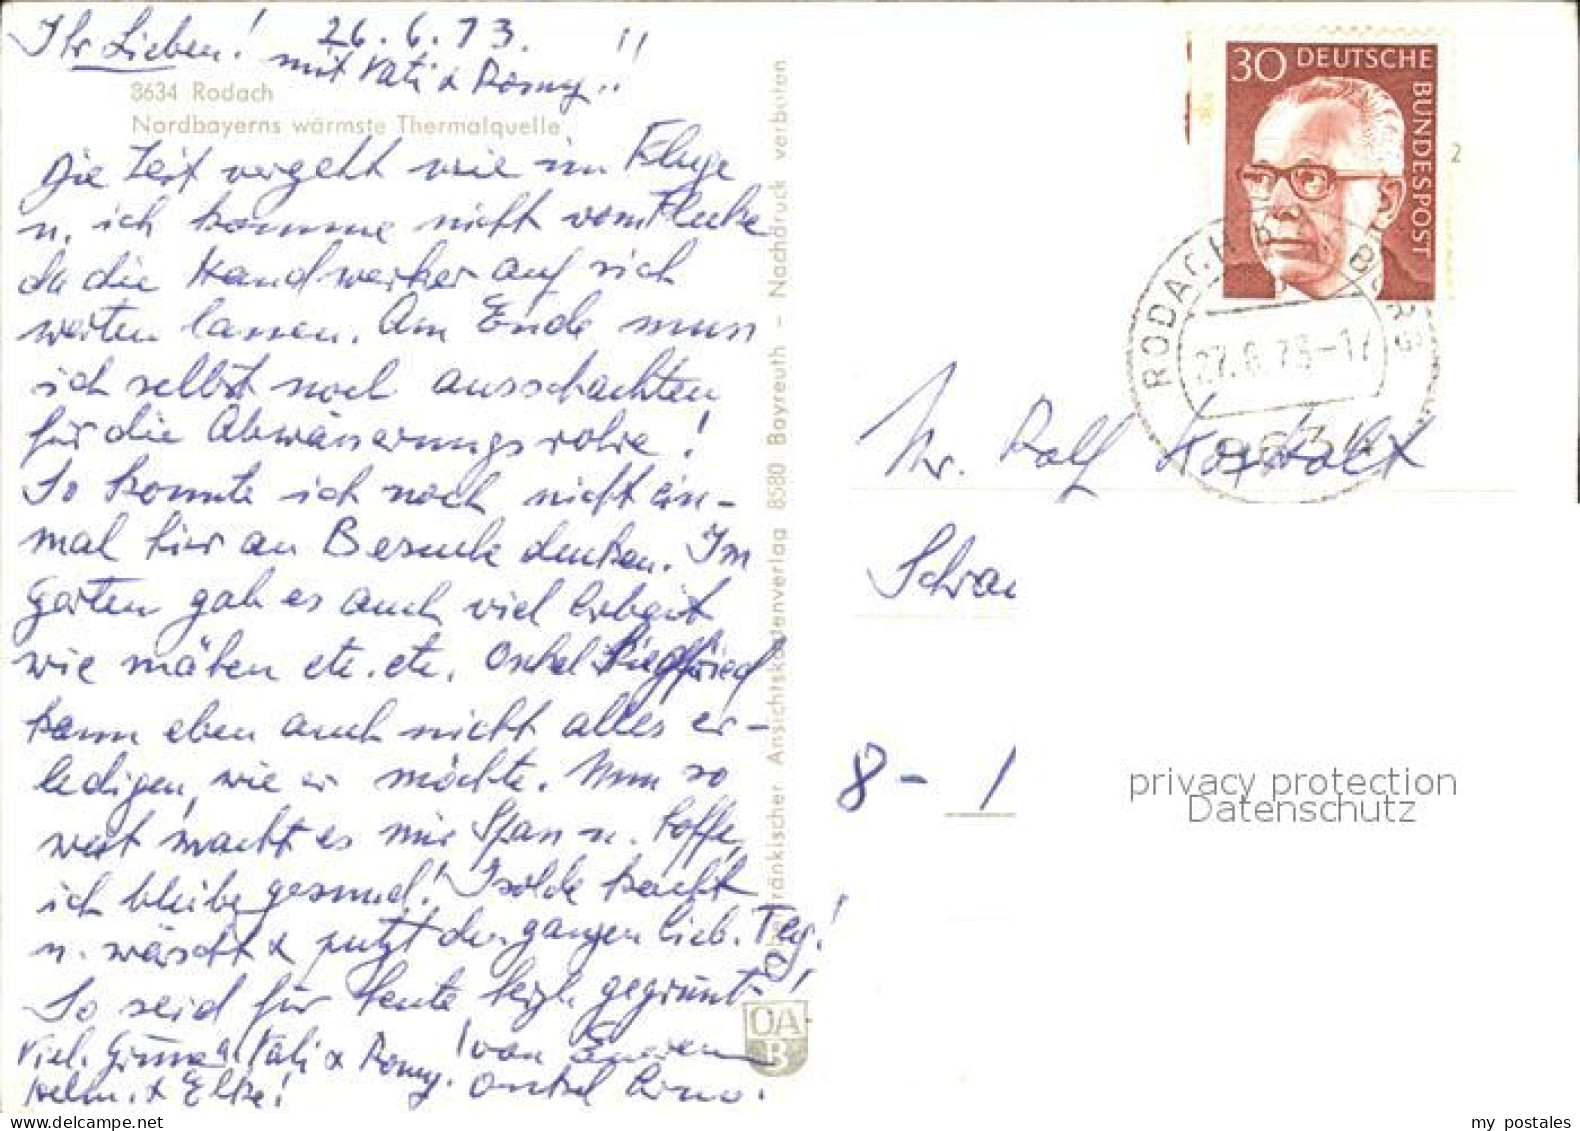 Ihr Lieben! 26.6.73.
mit Kati & Romy!!
8634 Rodach
Nordbayerns wärmste Thermalquelle
Die Zeit vergeht wie im Fluge
u. ich komme nicht vom Flecke
da die Handwerker auf sich
warten lassen. Am Ende muss
ich selbst noch ausschachten
für die Abwässerungsrohre!
So konnte ich noch nicht ein-
mal hier an Besuche denken. Im
Garten gab es auch viel Arbeit
wie mähen etc. etc. Onkel Siegfried
kann eben auch nicht alles er-
ledigen, wie er möchte. Nun so
weit macht es mir Span u. hoffe,
ich bleibe gesund! Isolde kocht
u. wäscht & putzt den ganzen lieb. Tag!
So seid für heute herzl. gegrüsst
Viel. Grüsse a. Kati & Romy. von Eurem
Helm. & Elke! Onkel Arno.
Oberfränkischer Ansichtskartenverlag 8580 Bayreuth - Nachdruck verboten
OA
B
30 DEUTSCHE
BUNDESPOST
2
RODACH B. COBURG
27.6.73-17
8634
Hr. Rolf
Schra
8 - 1
privacy protection
Datenschutz
my postales